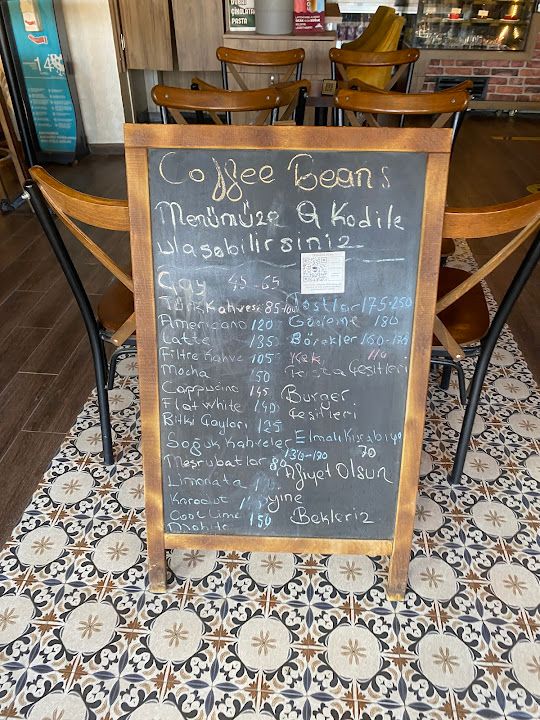 Coffee Beans
Menümüze Q Kodile
ulaşabilirsiniz
Çay 45-65
Türk Kahvesi 85-100
Americano 120
Latte 135
Filtre Kahve 105
Mocha 150
Cappucino 145
Flat white 140
Bitki Çayları 125
Soğuk Kahveler 130-180
Meşrubatlar
Limonata
Karadut
Cool Lime 150
Mohito
Tostlar 175-250
Gözleme 180
Börekler 160-170
Kek 110
Pasta Çeşitleri
Burger
Çeşitleri
Elmalı Kurabiye
70
Afiyet Olsun
yine
Bekleriz